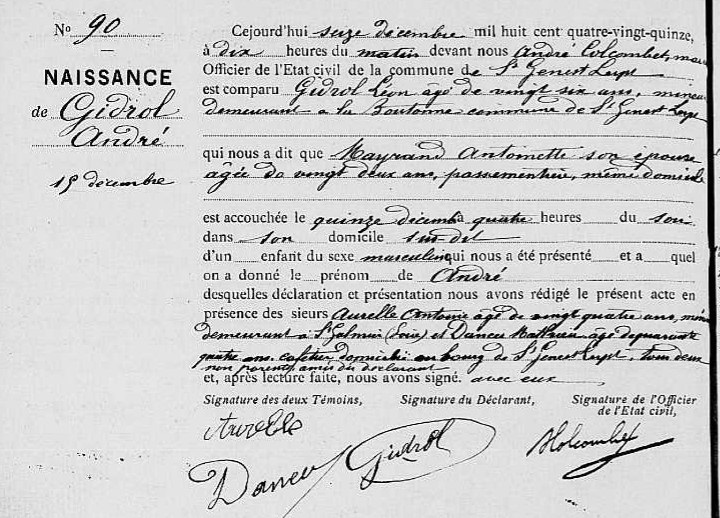 N° 90
NAISSANCE
de Gidrol
André
15 décembre
Cejourd'hui seize décembre mil huit cent quatre-vingt-quinze,
à dix heures du matin devant nous André Colcombet, maire
Officier de l'Etat civil de la commune de St Genest Lerpt
est comparu Gidrol Léon âgé de vingt six ans, mineur
demeurant à la Boutonne commune de St Genest Lerpt
qui nous a dit que Mayrand Antoinette son épouse
agée de vingt deux ans, passementière, même domicile
est accouchée le quinze décembre à quatre heures du soir
dans son domicile sus-dit
d'un enfant du sexe masculin qui nous a été présenté et a quel
on a donné le prénom de André
desquelles déclaration et présentation nous avons rédigé le présent acte en
présence des sieurs Aurelle Antoine âgé de vingt quatre ans,
demeurant à St Galmier (Loire) et Dancer Mathieu âgé de quarante
quatre ans cafetier domicilié au bourg de St Genest Lerpt, tous deux
non parents amis du déclarant
et, après lecture faite, nous avons signé. avec eux
Signature des deux Témoins, Signature du Déclarant, Signature de l'Officier
de l'Etat civil,
Aurelle
Gidrol
AColcombet